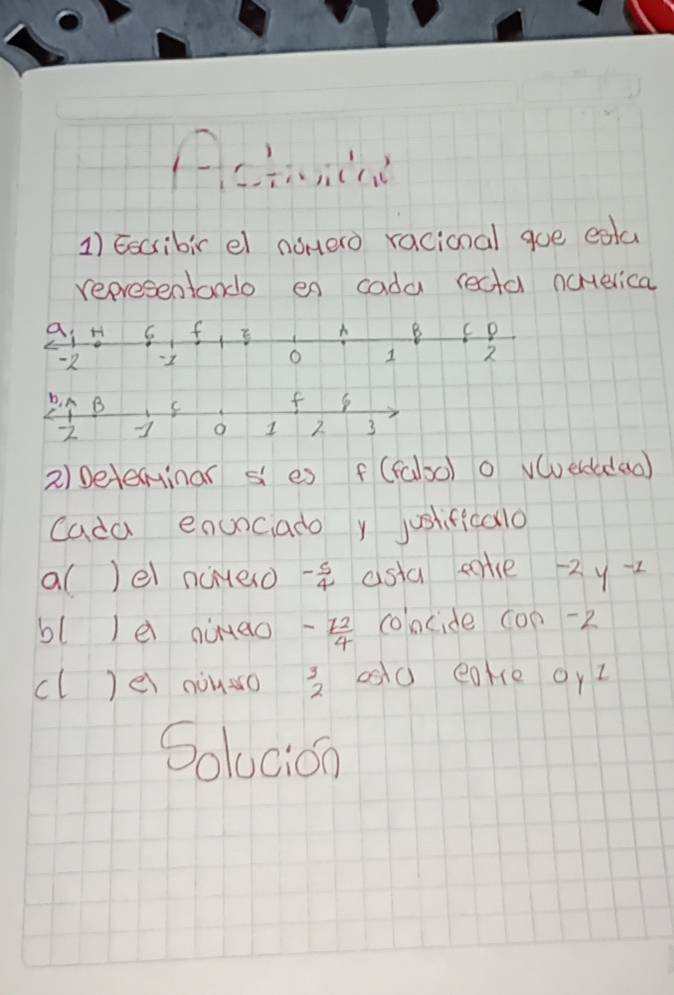 Actividad
1) Escribir el número racional que esta
representando en cada recta númerica
a. H G f E A B C D
-2 -1 0 1 2
b. A B C f G
-2 -1 0 1 2 3
2) Determinar si es f (falso) o v (verdadao)
Cada enunciado y justificarlo
a( ) el número -5/4 asta entre -2 y -1
b( ) el número -12/4 coincide con -2
c( ) el número 3/2 esta entre 0 y 1
Solución